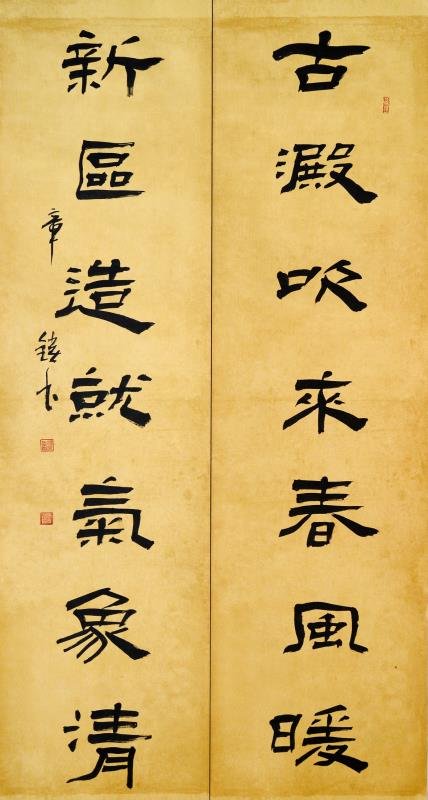 古澱吹來春風暖
新區造就氣象清
章
書